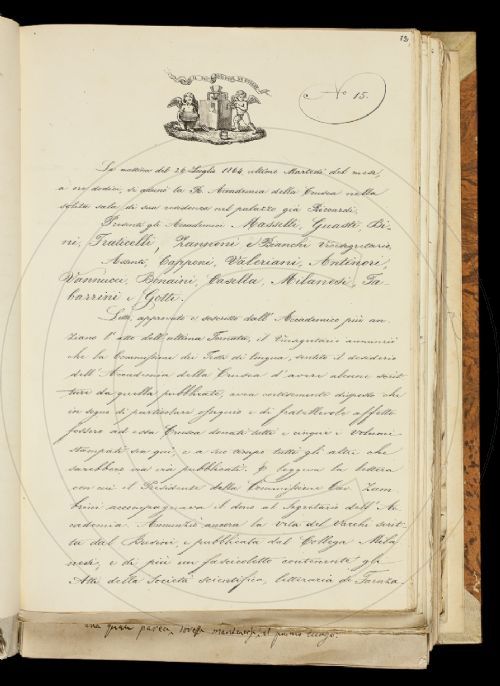 13
IL PIÙ BEL FIOR NE COGLIE
N.º 15.
La mattina del 26 Luglio 1864 ultimo Martedì del mese,
a ore dodici, si adunò la R. Accademia della Crusca nella
solita sala di sua residenza nel palazzo già Riccardi.
Presenti gli Accademici Masselli, Guasti, Bi-
ni, Fraticelli, Ranzoni e Bianchi Vicesegretario.
Assenti, Capponi, Valeriani, Antinori,
Vannucci, Bonaini, Casella, Milanesi, Ta-
barrini e Gotti.
Letto, approvato e soscritto dall'Accademico più an-
ziano l'atto dell'ultima Tornata, il Vicesegretario annunziò
che la Commissione dei Testi di lingua, sentito il desiderio
dell'Accademia della Crusca d'avere alcune scrit-
ture da quella pubblicate, avea cortesemente disposto che
in segno di particolare ossequio e di fratellevole affetto
fossero ad essa Crusca donati tutti e cinque i volumi
stampati sin quì, e a suo tempo tutti gli altri che
sarebbero via via pubblicati. E leggeva la lettera
con cui il Presidente della Commissione Cav. Zam-
brini accompagnava il dono al Segretario dell'Ac-
cademia. Annunziò ancora la vita del Varchi scrit-
ta dal Busini, e pubblicata dal Collega Mila-
nesi, e di più un fascicoletto contenente gli
Atti della Società scientifica, letteraria di Faenza.
una parca, il primo luogo.